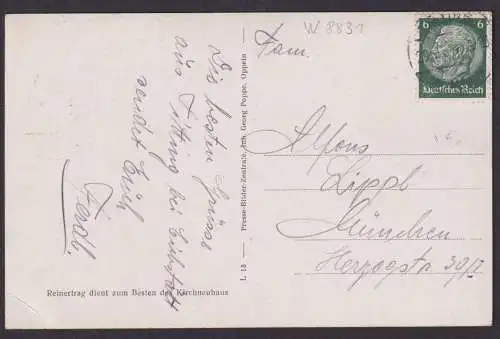 W 8831
6 6
Deutsches Reich
Fam.
Alfons
Lippl
München
Herzogstr. 39/I
Die besten Grüsse
aus Titting bei Eichstätt
sendet Euch
Ferdl.
Presse-Bilder-Zentrale, Inh. Georg Poppe, Oppeln
L 18
Reinertrag dient zum Besten des Kirchneubaus